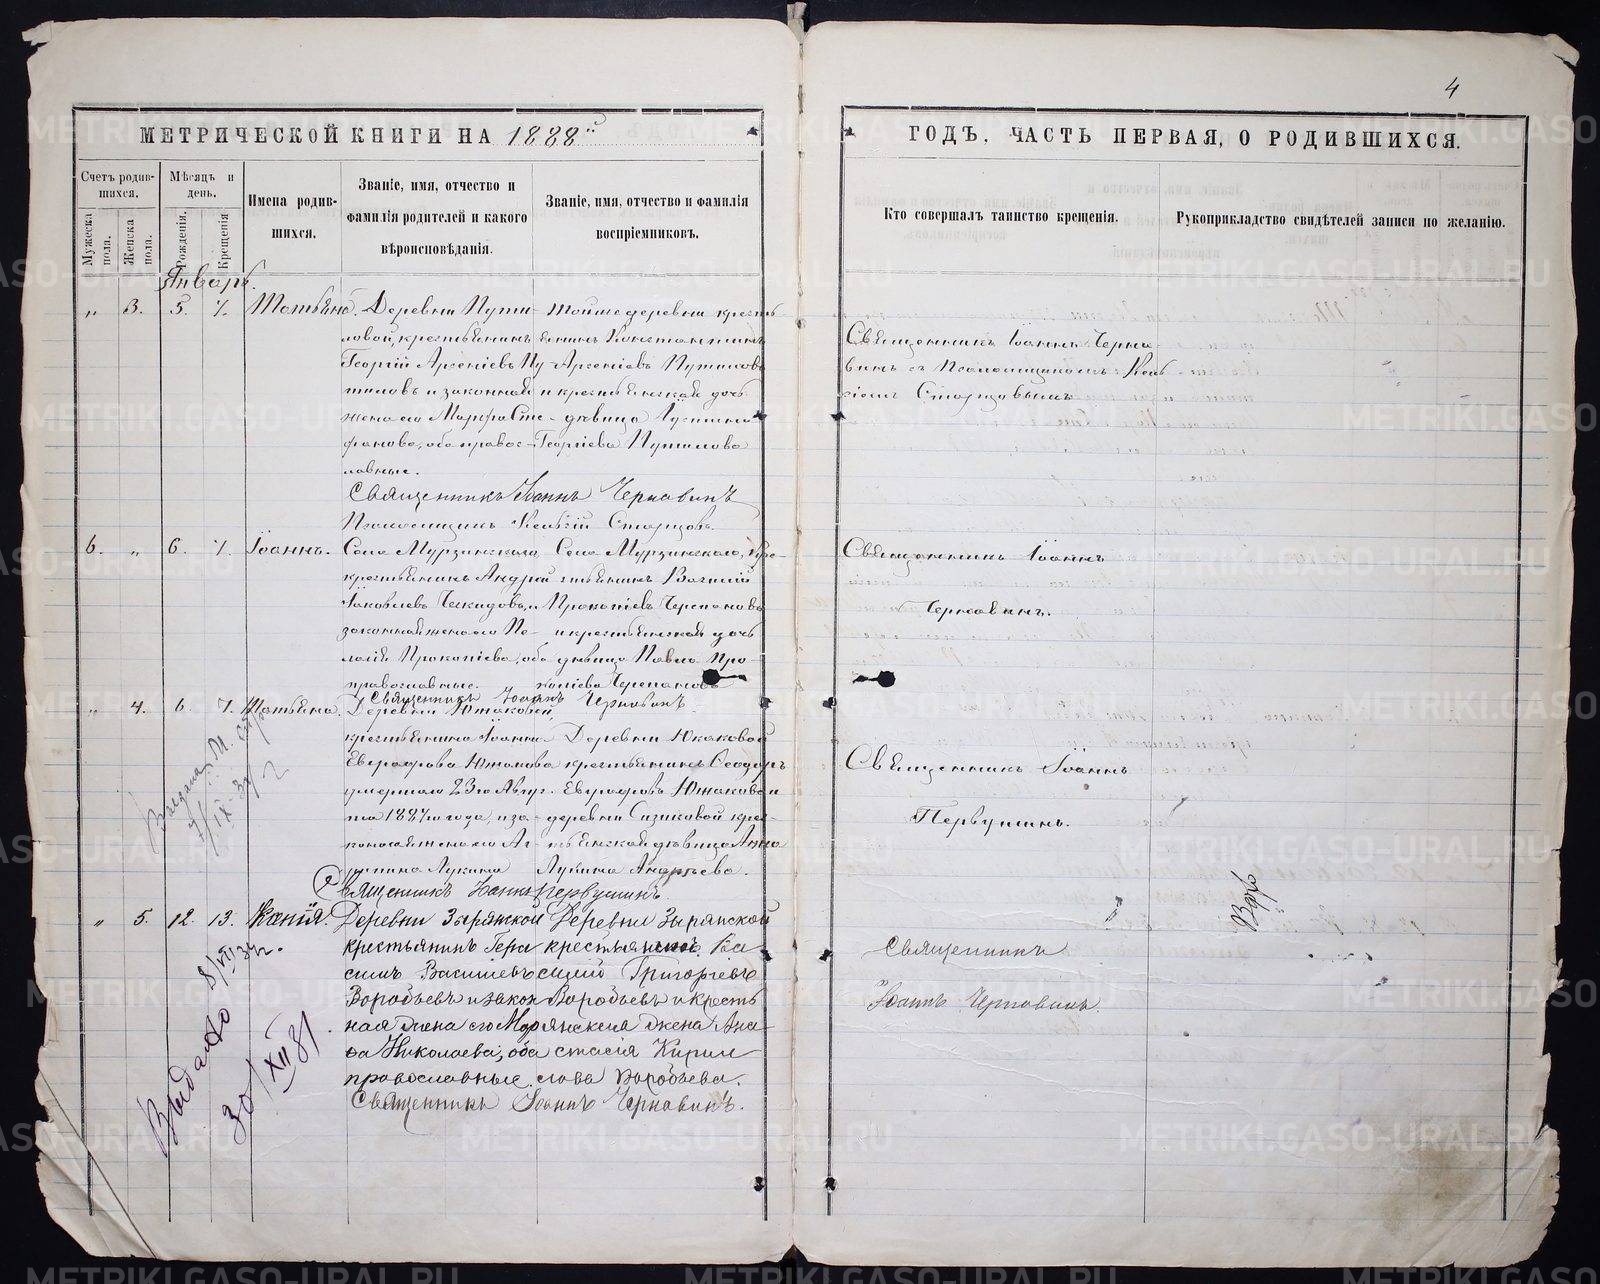 4
МЕТРИЧЕСКОЙ КНИГИ НА 1888й
ГОДЪ, ЧАСТЬ ПЕРВАЯ, О РОДИВШИХСЯ.
Счетъ родив-
шихся.
Мужеска
пола.
Женска
пола.
Мѣсяцъ и
день.
Рожденія.
Крещенія
Имена родив-
шихся.
Званіе, имя, отчество и
фамилія родителей и какого
вѣроисповѣданія.
Званіе, имя, отчество и фамилія
воспріемниковъ.
Кто совершалъ таинство крещенія.
Рукоприкладство свидѣтелей записи по желанію.
Январь.
„ 3. 5. 7. Татьяна.
Деревни Пути-
ловой, крестьянинъ
Георгій Арсеніевъ Пу-
тиловъ и законная
жена его Марѳа Сте-
фанова, оба правос-
лавные.
тойже деревни кресть-
янинъ Константинъ
Арсеніевъ Путиловъ
и крестьянская дочь
дѣвица
Георгіева Путилова
Священникъ Іоаннъ Черна-
винъ съ Псаломщикомъ
Старцовымъ
Священникъ Іоаннъ Чернавинъ
Псаломщикъ Старцовъ.
6. „ 6. 7. Іоаннъ.
Села Мурзинскаго,
крестьянинъ Андрей
Іаковлевъ и
законная жена его Пе-
лагія Прокопіева, оба
православные.
Села Мурзинскаго, кре-
стьянинъ Василій
Прокопіевъ Черепановъ
и крестьянская дочь
дѣвица Павла Про-
копіева Черепанова
Священникъ Іоаннъ
Чернавинъ.
Священникъ Іоаннъ Чернавинъ.
„ 4. 6. 7. Татьяна.
Деревни Южаковой,
крестьянина Іоанна
Евграфова Южакова
умершаго 23го Авгус-
та 1887го года, и за-
конная жена его Аг-
рипина Лукина
Деревни Южаковой
крестьянинъ Ѳеодоръ
Евграфовъ Южаковъ и
деревни Сизиковой крес-
тьянская дѣвица Анна
Андреева.
Священникъ Іоаннъ
Первушинъ.
Священникъ Іоаннъ Первушинъ
„ 5. 12. 13. Ксенія.
Деревни Зырянской
крестьянинъ Гера-
симъ Васильевъ
Воробьевъ и закон-
ная жена его Мар-
ѳа Николаева, оба
православные.
Деревни Зырянской
крестьянинъ Ва-
силій Григорьевъ
Воробьевъ и кресть-
янская жена Ана-
стасія Кирил-
лова Воробьева.
Священникъ
Іоаннъ Чернавинъ.
Священникъ Іоаннъ Чернавинъ.
Выдано
30/XII 81